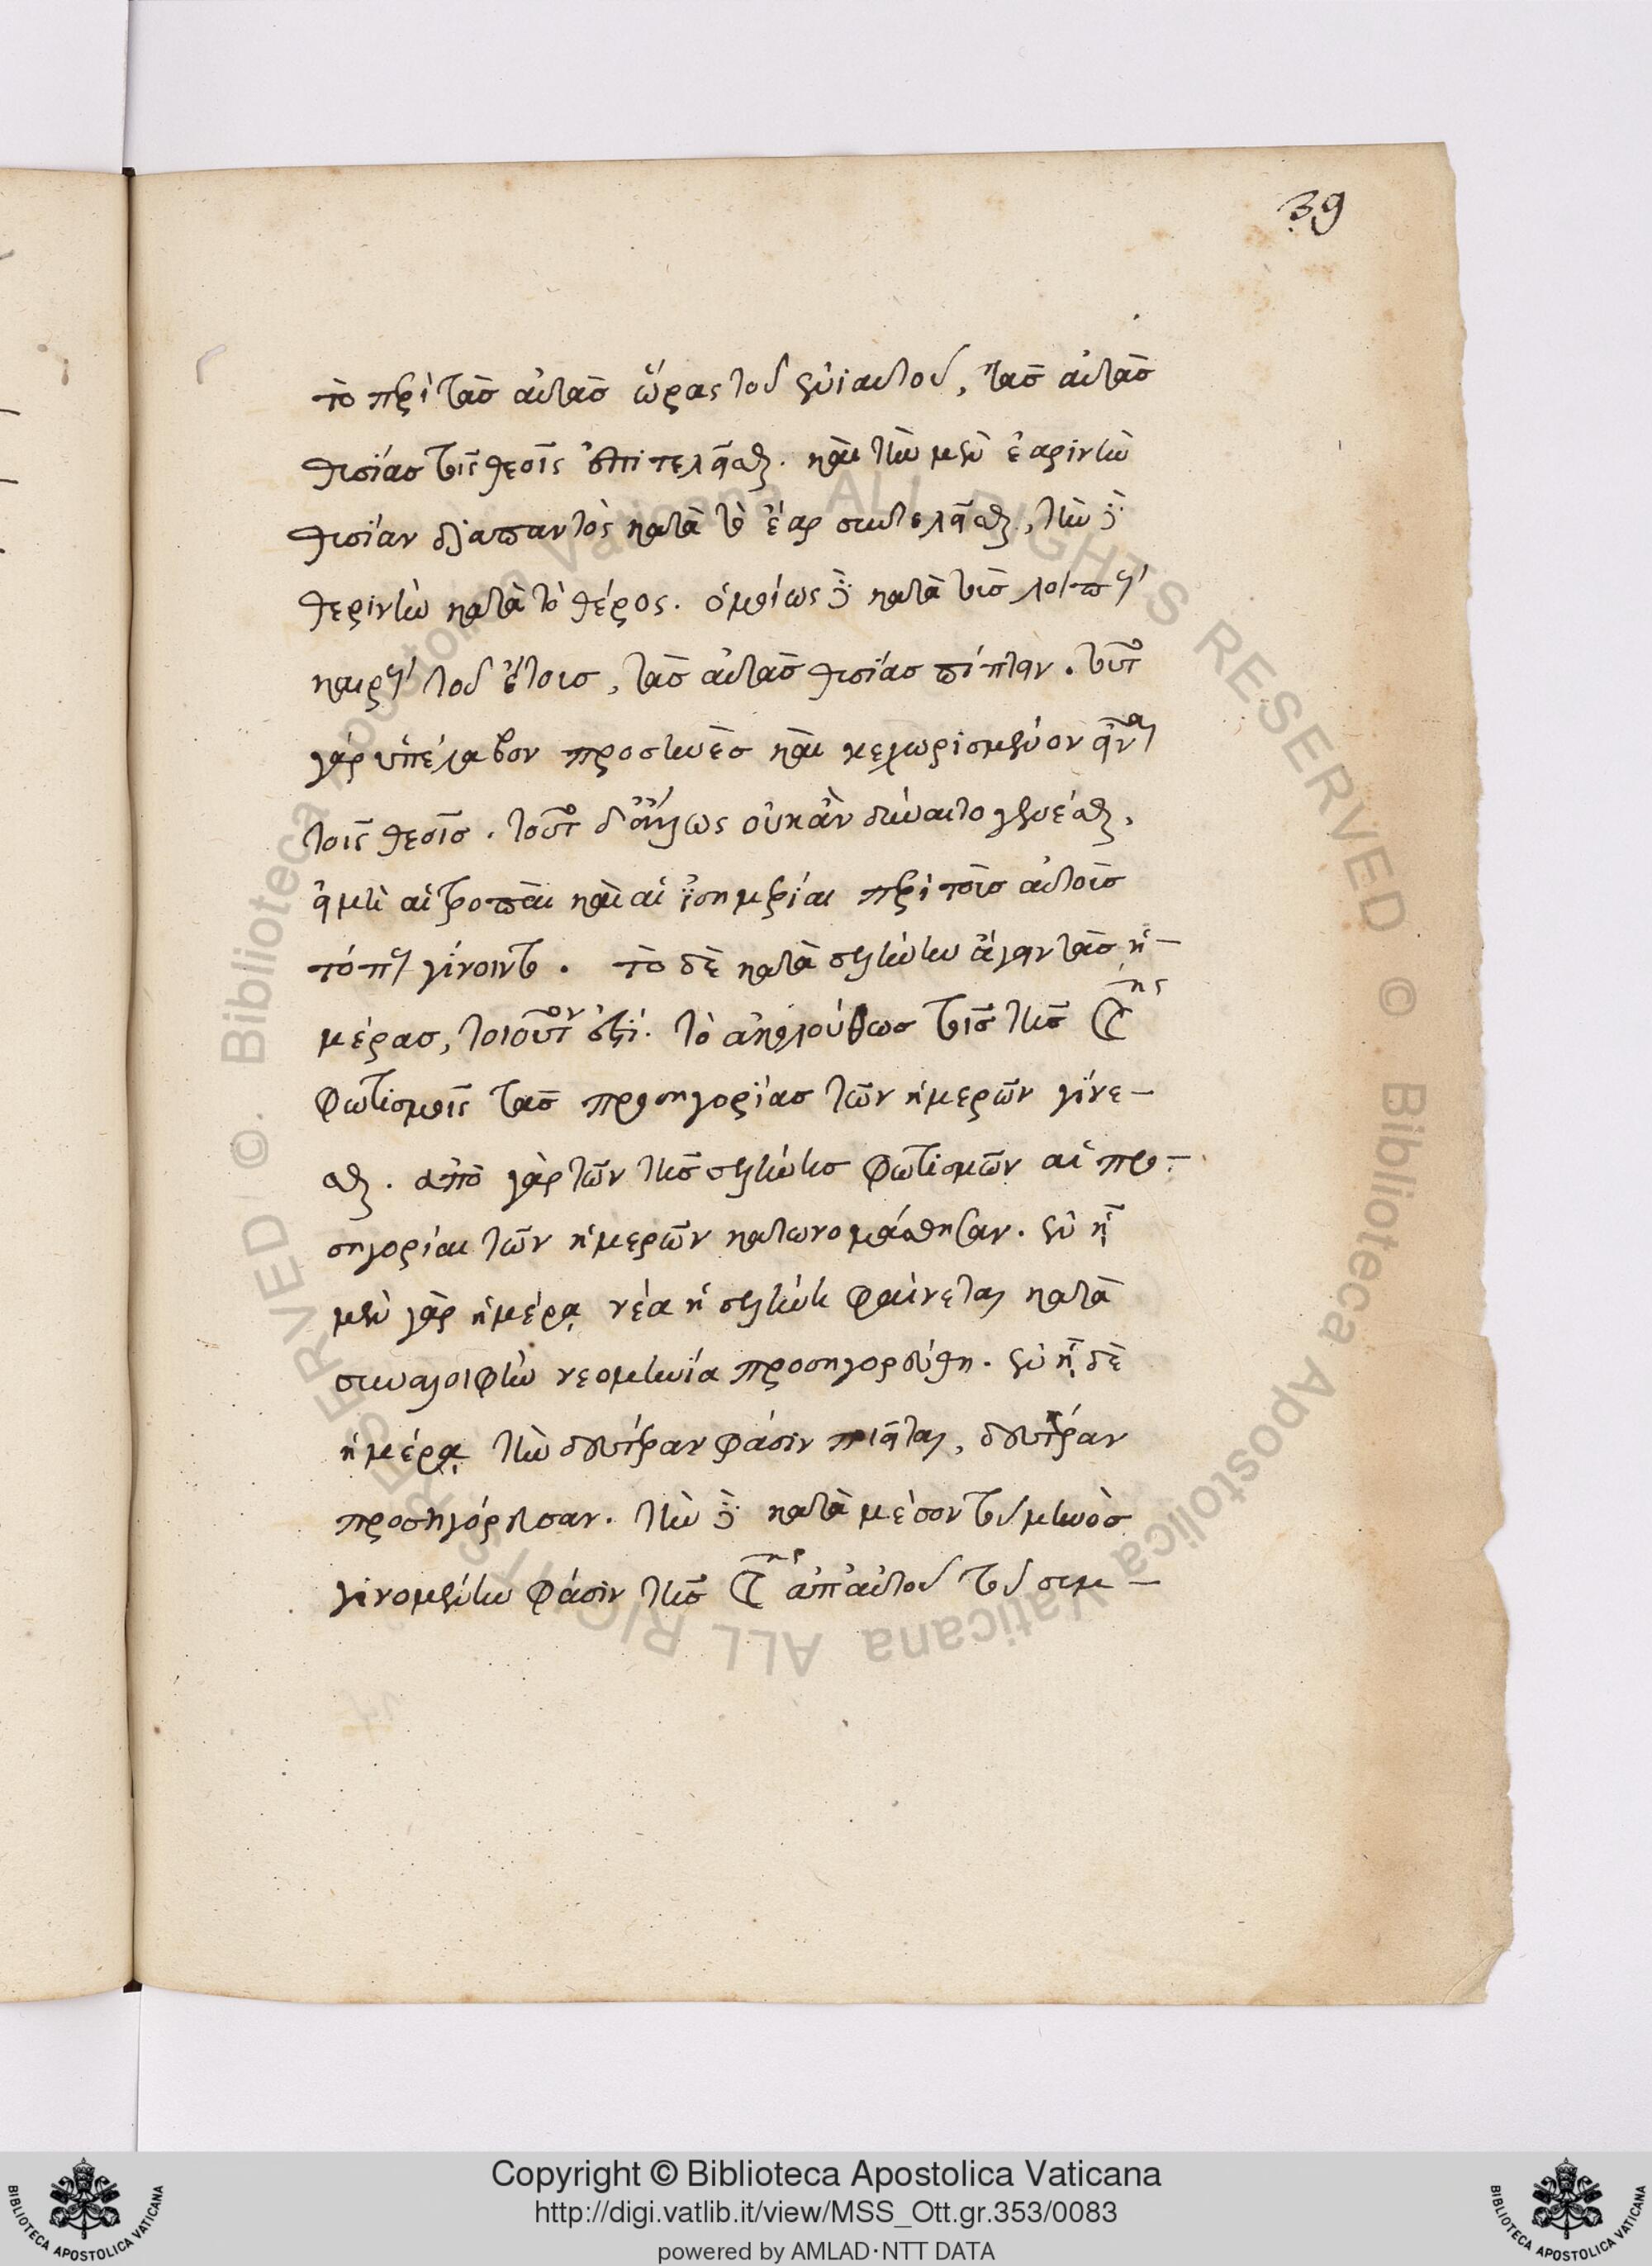 39
τὸ περὶ τὰς αὐτὰς ὥρας τοῦ ἐνιαυτοῦ, τὰς αὐτὰς
θυσίας τοῖς θεοῖς ἐπιτελεῖσθαι. καὶ τὴν μὲν ἐαρινὴν
θυσίαν διαπαντὸς κατὰ τὸ ἔαρ συντελεῖσθαι, τὴν δὲ
θερινὴν κατὰ τὸ θέρος. ὁμοίως δὲ κατὰ τοὺς λοιποὺς
καιροὺς τοῦ ἔτους, τὰς αὐτὰς θυσίας πίπτειν. τοῦτο
γὰρ ὑπέλαβον προσηνὲς καὶ κεχωρισμένον εἶναι
τοῖς θεοῖς. τοῦτο δ' ἄλλως οὐκ ἂν δύναιτο γενέσθαι,
εἰ μὴ αἱ τροπαὶ καὶ αἱ ἰσημερίαι περὶ τοὺς αὐτοὺς
τόπους γίνοιντο. τὸ δὲ κατὰ σελήνην ἄγειν τὰς ἡ-
μέρας, τοιοῦτόν ἐστι. τὸ ἀκολούθως τοῖς τῆς ☾ης
φωτισμοῖς τὰς προσηγορίας τῶν ἡμερῶν γίνε-
σθαι. ἀπὸ γὰρ τῶν τῆς σελήνης φωτισμῶν αἱ προ-
σηγορίαι τῶν ἡμερῶν κατωνομάσθησαν. ἐν ᾗ
μὲν γὰρ ἡμέρᾳ νέα ἡ σελήνη φαίνεται κατὰ
συναλοιφὴν νεομηνία προσηγορεύθη. ἐν ᾗ δὲ
ἡμέρᾳ τὴν δευτέραν φάσιν ποιεῖται, δευτέραν
προσηγόρευσαν. τὴν δὲ κατὰ μέσον τοῦ μηνὸς
γινομένην φάσιν τῆς ☾ης ἀπ' αὐτοῦ τοῦ συμ-
Copyright © Biblioteca Apostolica Vaticana
http://digi.vatlib.it/view/MSS_Ott.gr.353/0083
powered by AMLAD·NTT DATA
BIBLIOTECA APOSTOLICA VATICANA
BIBLIOTECA APOSTOLICA VATICANA
© Biblioteca Apostolica Vaticana ALL RIGHTS RESERVED
© Biblioteca Apostolica Vaticana ALL RIGHTS RESERVED